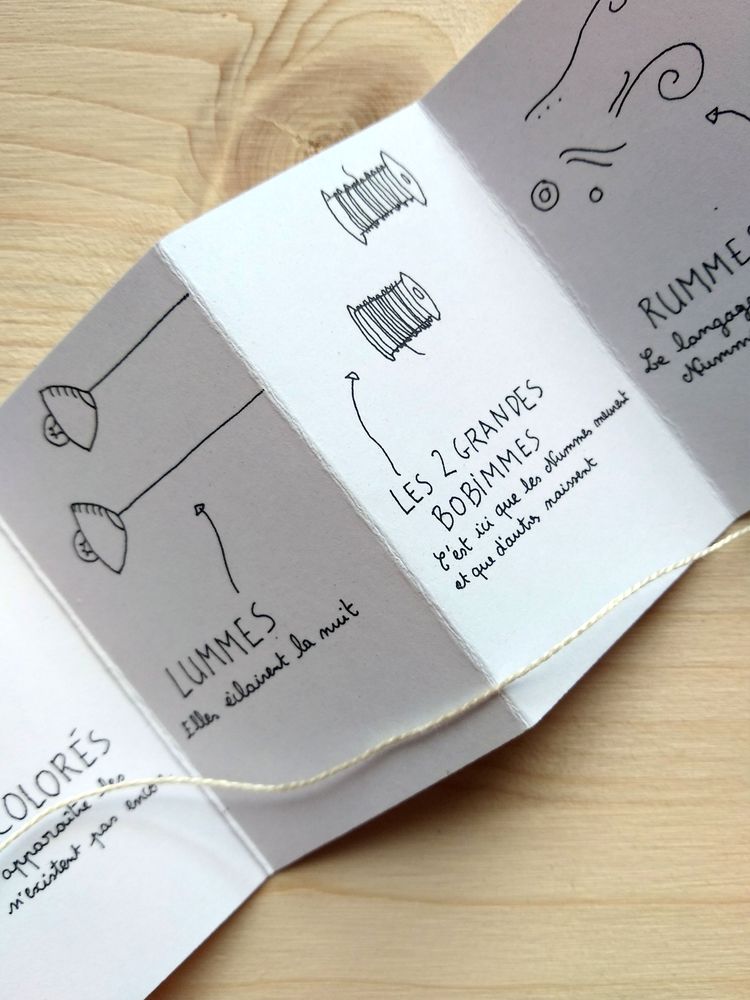 COLORÉS
apparaître les
n'existent pas
LUMMES
Elles éclairent la nuit
LES 2 GRANDES
BOBiMMES
C'est ici que les Nummes meurent
et que d'autres naissent
RUMMES
Le